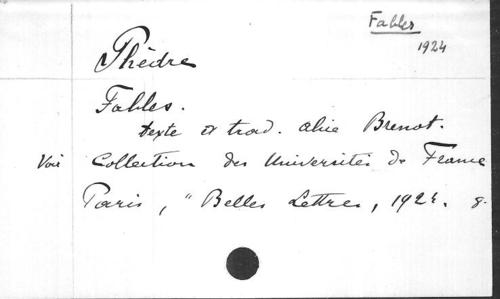 Fables
1924
Phèdre
Fables.
texte et trad. Alice Brenot.
Voir Collection des Universités de France
Paris, "Belles Lettres, 1924. 8.